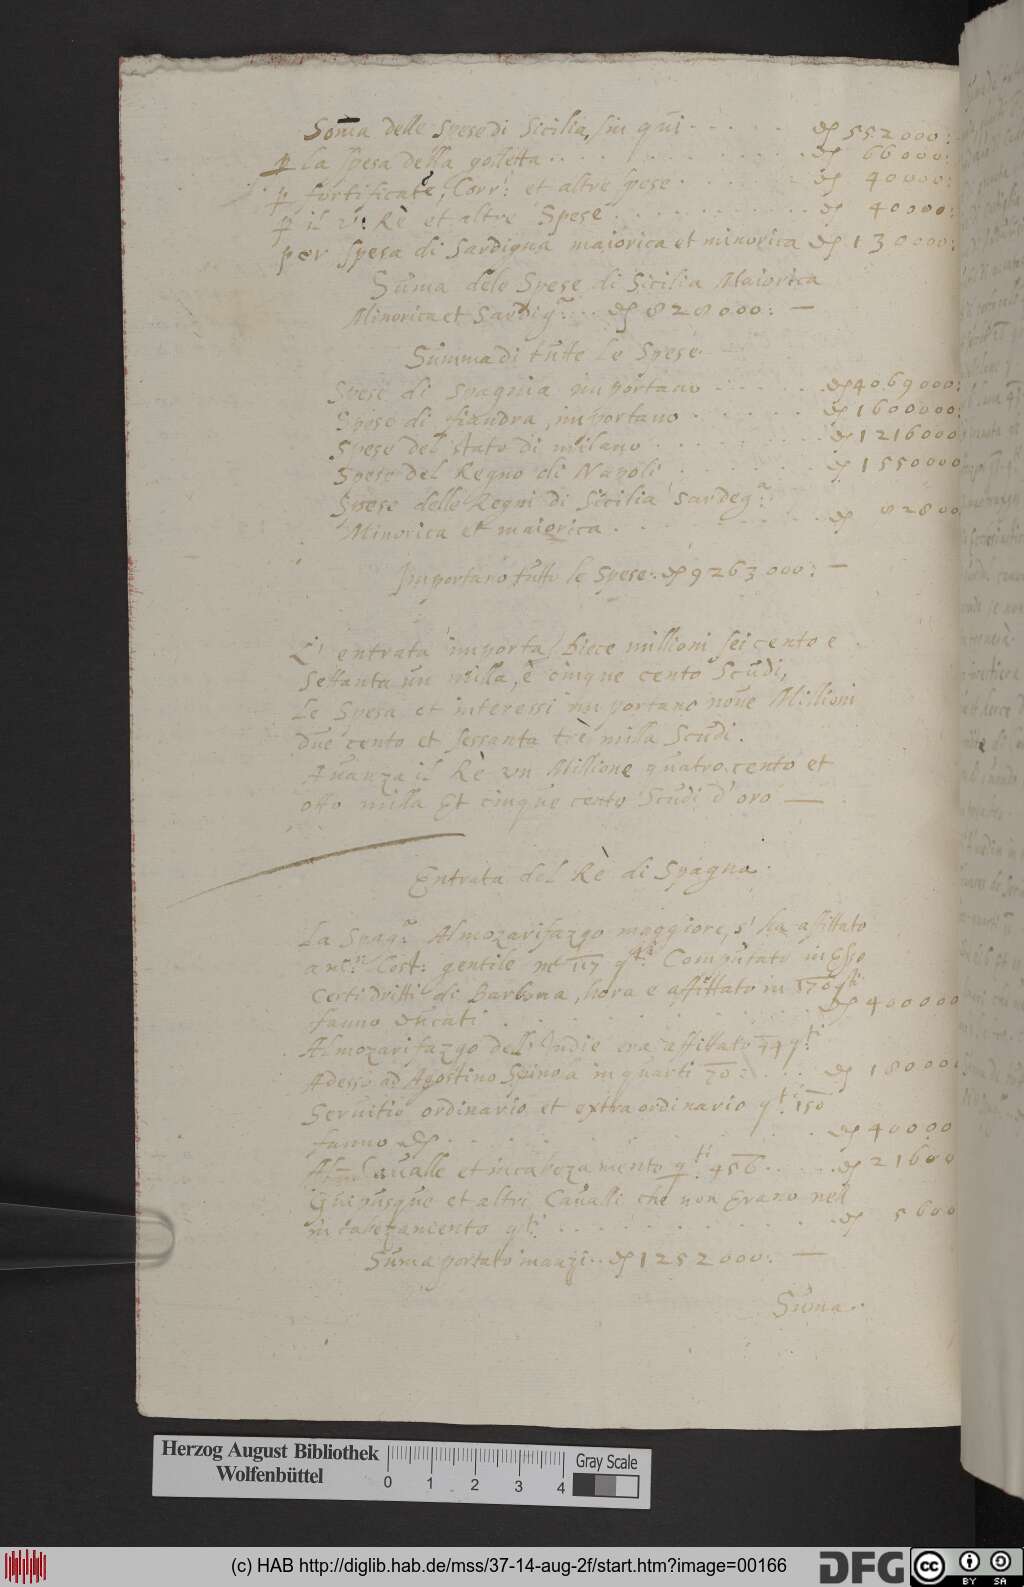 Soma delle spese di Sicilia, fin qui . . . . . 552000:
la spesa della golletta . . . . 66000:
fortificate, Corr: et altre spese . . . . 40000:
il v: Rè et altre Spese . . . . 40000:
per spesa di Sardigna maiorica et minorica 130000:
Suma dele Spese di Sicilia Maiorica
Minorica et Sardig: . . . 828000: —
Summa di tutte le Spese
Spese di Spagnia importano . . . . 4069000:
Spese di fiandra, importano . . . . 1600000:
Spese del stato di milano . . . . 1216000
Spese del Regno di Napoli . . . . 1550000
Spese delle Regni di Sicilia Sardeg:
Minorica et maiorica . . . . 82800
Importano tutte le Spese: 9263000: —
L' entrata importa Diece millioni sei cento e
settanta un milla, è cinque cento Scudi,
Le Spesa et interessi importano noue Millioni
due cento et sessanta trè milla Scudi.
Auanza il Rè vn Millione quatro cento et
otto milla Et cinque cento Scudi d'oro —
Entrata del Rè di Spagna.
La Spag: Almozarifazgo maggiore, s' ha affittato
Cost: gentile 117 Computato in Esso
certi dritti di Barbma, hora e affittato in 170
fanno ducati . . . . 400000
Almozarifazgo dell Indie era affittato 74
Adesso ad Agostino Spinola in quarti 70: . . . 180000:
Seruitio ordinario et extraordinario 150
fanno . . . . 40000
et incabezamento 456 . . . . 21600
Guipusque et altri Cavalli che non Erano nell
incabezamento . . . . 5600
Suma portato inanzi . . 1252000: —
Suma.
Herzog August Bibliothek
Wolfenbüttel
0 1 2 3 4
Gray Scale
(c) HAB http://diglib.hab.de/mss/37-14-aug-2f/start.htm?image=00166
DFG
cc
BY SA